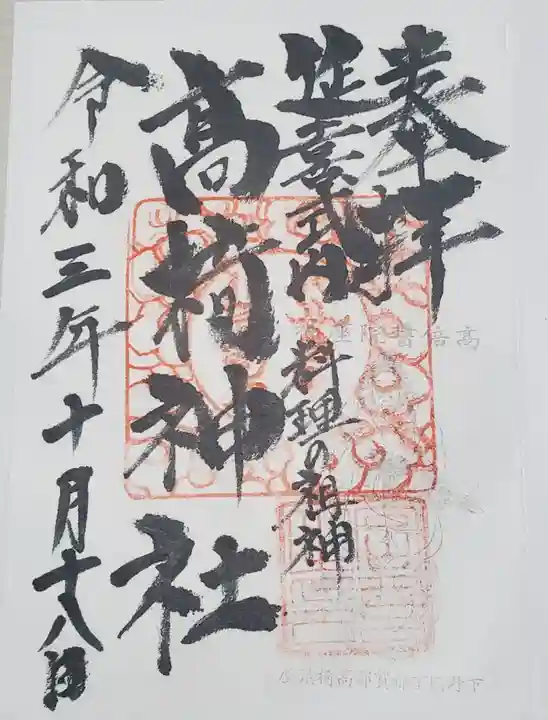 奉拝
延喜式内
料理の祖神
高椅神社
令和三年十月十八日